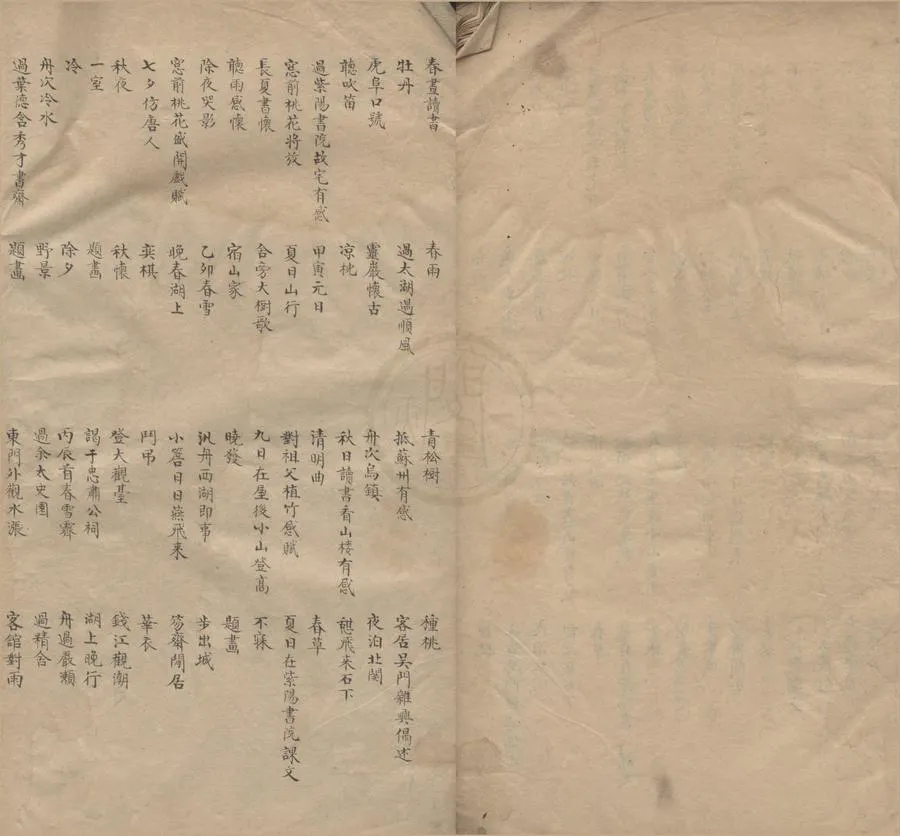 春晝讀書 春雨 青松樹 種桃
牡丹 過太湖遇順風 抵蘇州有感 客居吳門雜興偶述
虎阜口號 靈巖懷古 舟次烏鎮 夜泊北関
聽吹笛 凉枕 秋日讀書看山樓有感 憇飛来石下
過紫陽書院故宅有感 甲寅元日 清明曲 春草
窓前桃花將放 夏日山行 對祖父植竹感賦 夏日在紫陽書院課文
長夏書懷 合旁大樹歌 九日在屋後小山登高 不寐
聽雨感懷 宿山家 曉發 題畫
除夜哭影 乙卯春雪 汎舟西湖即事 步出城
窓前桃花盛開戲賦 晚春湖上 小窓日日燕飛来 笏齋閒居
七夕仿唐人 奕棋 鬥弔 華衣
秋夜 秋懷 登大觀臺 錢江觀潮
一室 題畫 謁于忠肅公祠 湖上晚行
冷 除夕 丙辰首春雪霽 舟過嚴瀬
舟次冷水 野景 過余太史園 過精舍
過葉德含秀才書齋 題畫 東門外觀水漲 客舘對雨